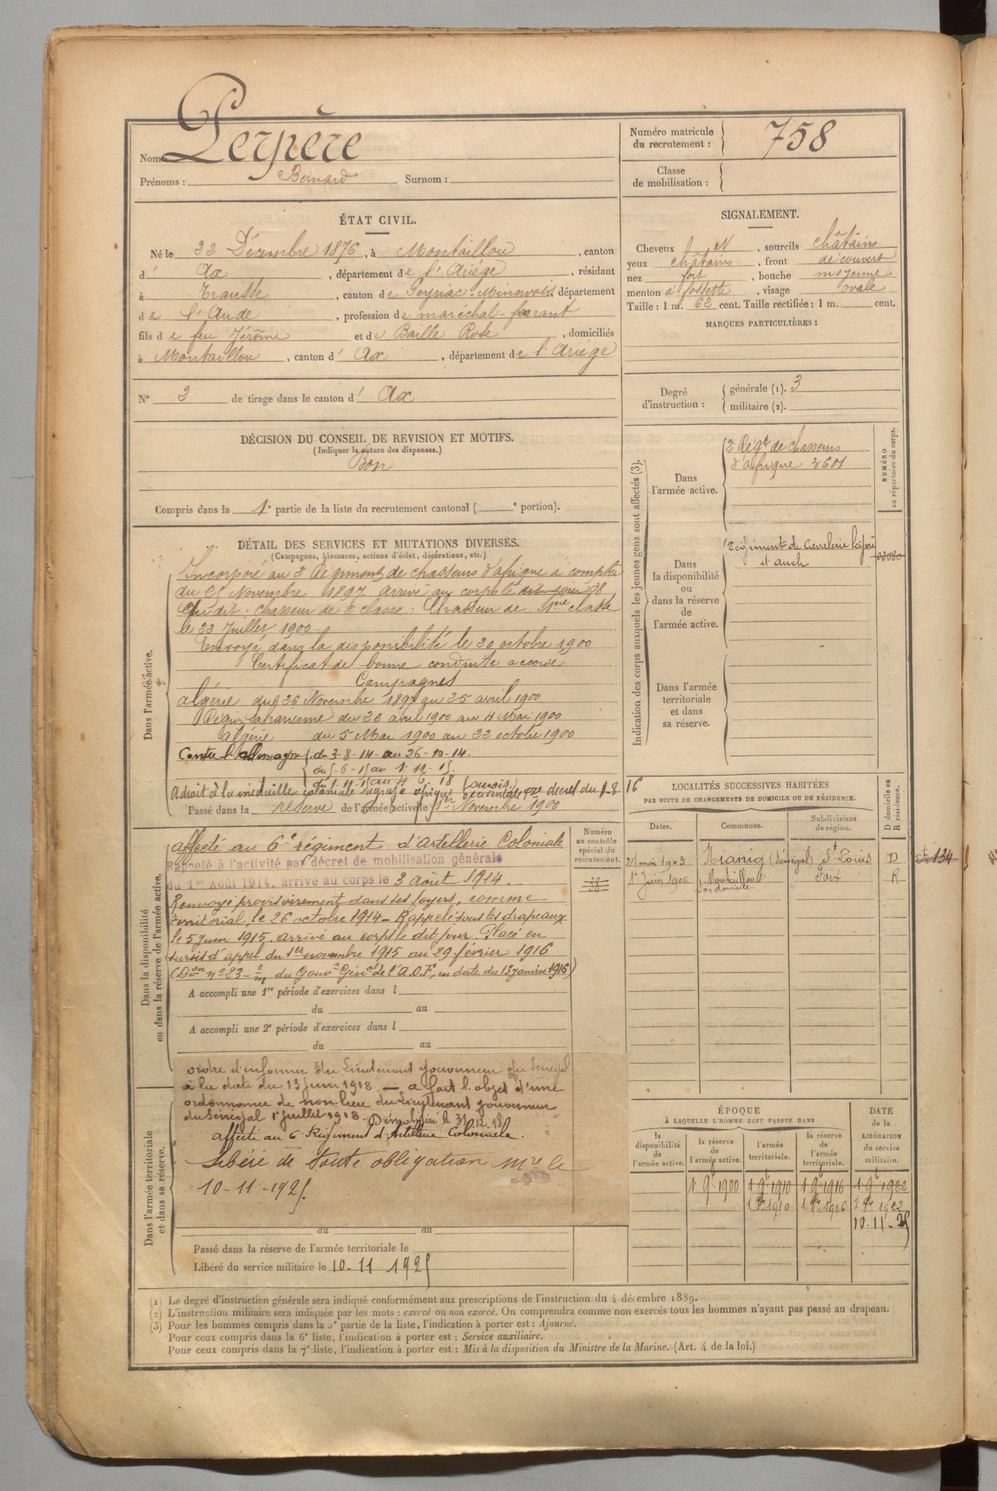 Nom Perpère
Prénoms : Bernard Surnom :
Numéro matricule du recrutement : 758
Classe de mobilisation :
ÉTAT CIVIL.
Né le 22 Décembre 1876, à Montaillou, canton
d' Ax, département de l'Ariége, résidant
à Trausse, canton de Peyriac-Minervois, département
de l'Aude, profession de maréchal-ferrant
fils de feu Jérôme et de Baille Rose, domiciliés
à Montaillou, canton d' Ax, département de l'Ariége
N° 3 de tirage dans le canton d' Ax
SIGNALEMENT.
Cheveux N, sourcils châtains
yeux châtains, front découvert
nez fort, bouche moyenne
menton à fossette, visage ovale
Taille : 1 m. 62 cent. Taille rectifiée : 1 m. cent.
MARQUES PARTICULIÈRES :
Degré d'instruction : générale (1). 3
militaire (2).
DÉCISION DU CONSEIL DE REVISION ET MOTIFS.
(Indiquer la nature des dispenses.)
Bon
Compris dans la 1e partie de la liste du recrutement cantonal ( e portion).
Indication des corps auxquels les jeunes gens sont affectés (3).
NUMÉRO au répertoire du corps.
Dans l'armée active.
2 Régt de chasseurs
d'afrique 3601
Dans la disponibilité ou dans la réserve de l'armée active.
Régiment de Cavalerie légère
d'auch
Dans l'armée territoriale et dans sa réserve.
DÉTAIL DES SERVICES ET MUTATIONS DIVERSES.
(Campagnes, blessures, actions d'éclat, décorations, etc.)
Dans l'armée active.
Incorporé au 2 Régiment de chasseurs d'afrique à compter
du 25 Novembre 1897 arrivé au corps le
dit. Chasseur de 2 classe. Chasseur de 1ère classe
le 23 Juillet 1900.
Envoyé dans la disponibilité le 20 octobre 1900
Certificat de bonne conduite accordé
Campagnes
algérie du 26 Novembre 1897 au 25 avril 1900
Région saharienne du 26 avril 1900 au 4 Mai 1900
algérie du 5 Mai 1900 au 22 octobre 1900
Contre l'Allemagne du 3-8-14 au 26-10-14
A droit à la médaille coloniale agrafe afrique
Passé dans la réserve de l'armée active le 1er Novembre 1900
Dans la disponibilité ou dans la réserve de l'armée active.
Numéro au contrôle spécial du recrutement.
affecté au 6e régiment d'Artellerie Coloniale
Rappelé à l'activité par décret de mobilisation générale
du 1er Août 1914, arrivé au corps le 3 Août 1914.
Renvoyé provisoirement dans ses foyers, comme
territorial, le 26 octobre 1914 - Rappelé sous les drapeaux
le 5 juin 1915. arrivé au corps le dit jour. Placé en
sursis d'appel du 1er novembre 1915 au 29 février 1916
du Gouvr Génal de l'A.O.F., en date du 13 janvier 1916)
A accompli une 1re période d'exercices dans l
du au
A accompli une 2e période d'exercices dans l
du au
Dans l'armée territoriale et dans sa réserve.
ordre d'informer du Lieutenant gouverneur du Sénégal
à la date du 13 juin 1918. — a fait l'objet d'une
ordonnance de non lieu du Lieutenant gouverneur
du Sénégal 1er juillet 1918.
affecté au 6 Régiment d'Artillerie Coloniale.
Libéré de toute obligation mre le
10-11-1925
du au
Passé dans la réserve de l'armée territoriale le
Libéré du service militaire le 10-11 1925
LOCALITÉS SUCCESSIVES HABITÉES
PAR SUITE DE CHANGEMENTS DE DOMICILE OU DE RÉSIDENCE.
Dates. Communes. Subdivisions de région. D domicile ou R résidence.
21 mai 1903 Nianig (Sénégal) St Louis D
1er Juin 1906 Montaillou Foix R
134
ÉPOQUE
À LAQUELLE L'HOMME DOIT PASSER DANS
la disponibilité de l'armée active.
la réserve de l'armée active.
l'armée territoriale.
la réserve de l'armée territoriale.
DATE de la LIBÉRATION du service militaire.
1 9e 1900 1 9e 1910 1 9e 1916 1 9e 1922
1 9e 1910 1 9e 1916 1 9e 1922
10-11-25
(1) Le degré d'instruction générale sera indiqué conformément aux prescriptions de l'instruction du 4 décembre 1889.
(2) L'instruction militaire sera indiquée par les mots : exercé ou non exercé. On comprendra comme non exercés tous les hommes n'ayant pas passé au drapeau.
(3) Pour les hommes compris dans la 5e partie de la liste, l'indication à porter est : Ajourné.
Pour ceux compris dans la 6e liste, l'indication à porter est : Service auxiliaire.
Pour ceux compris dans la 7e liste, l'indication à porter est : Mis à la disposition du Ministre de la Marine. (Art. 4 de la loi.)